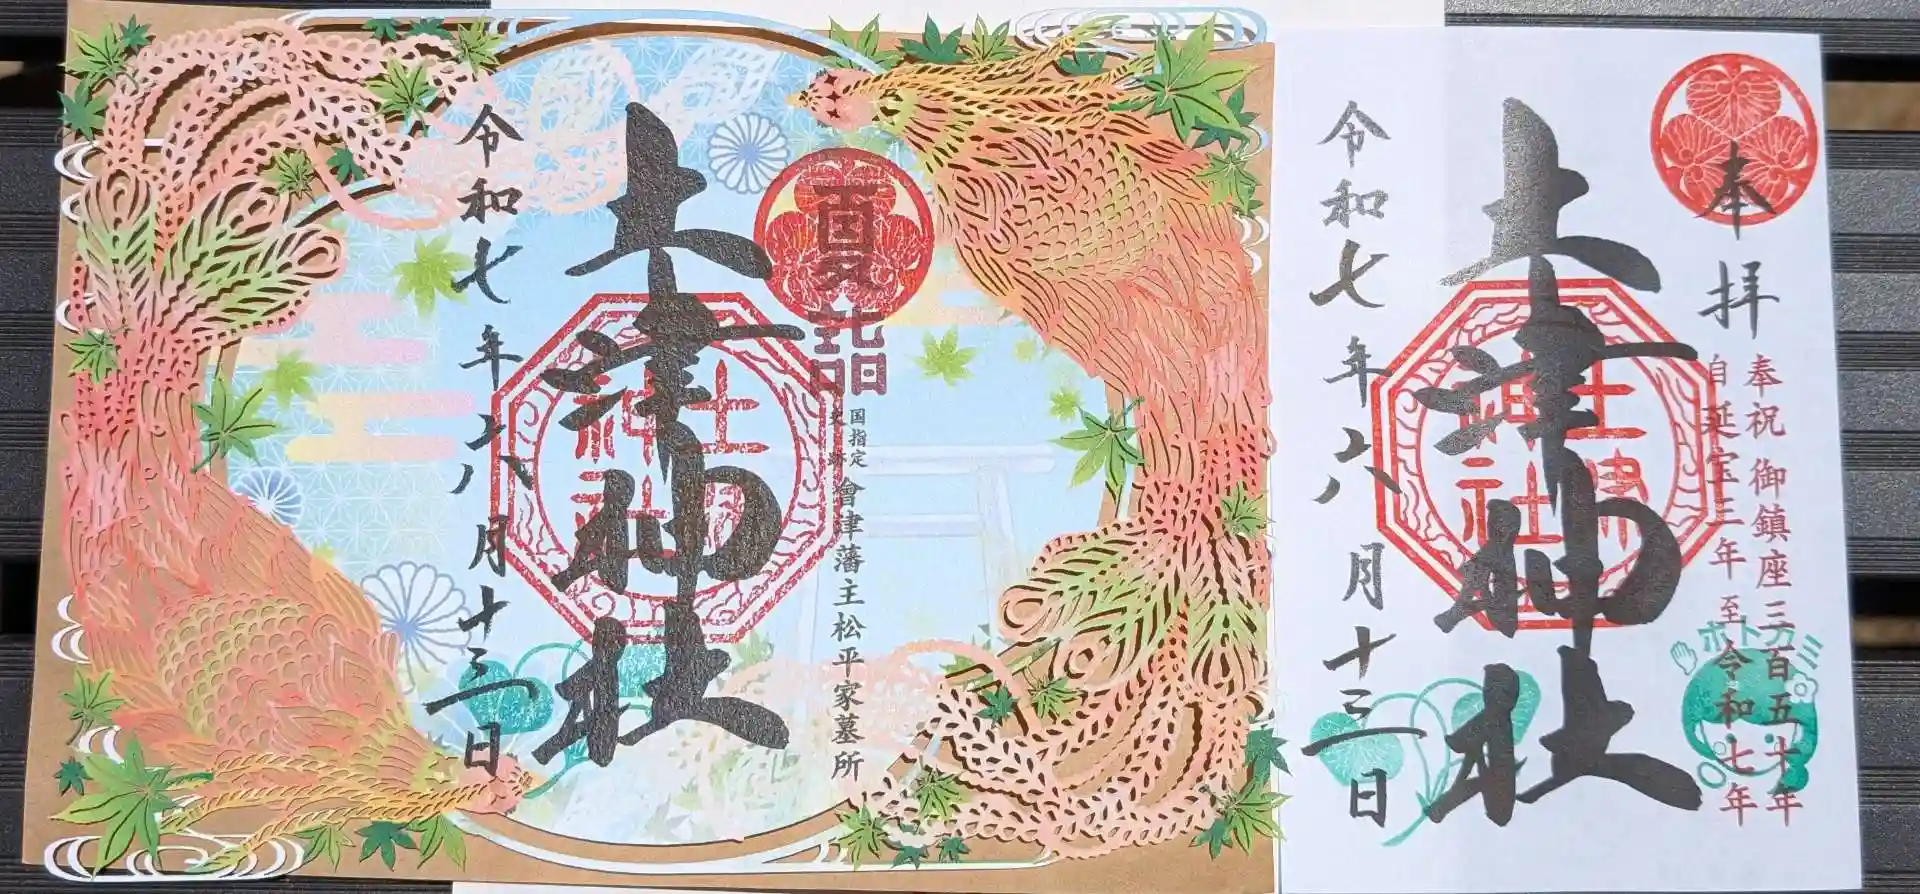 夏詣
国指定
史跡
會津藩主松平家墓所
土津神社
土津
神社
令和七年六月十三日
奉拝
奉祝 御鎮座三百五十年
自延宝三年 至令和七年
ホトカミ
土津神社
土津
神社
令和七年六月十三日